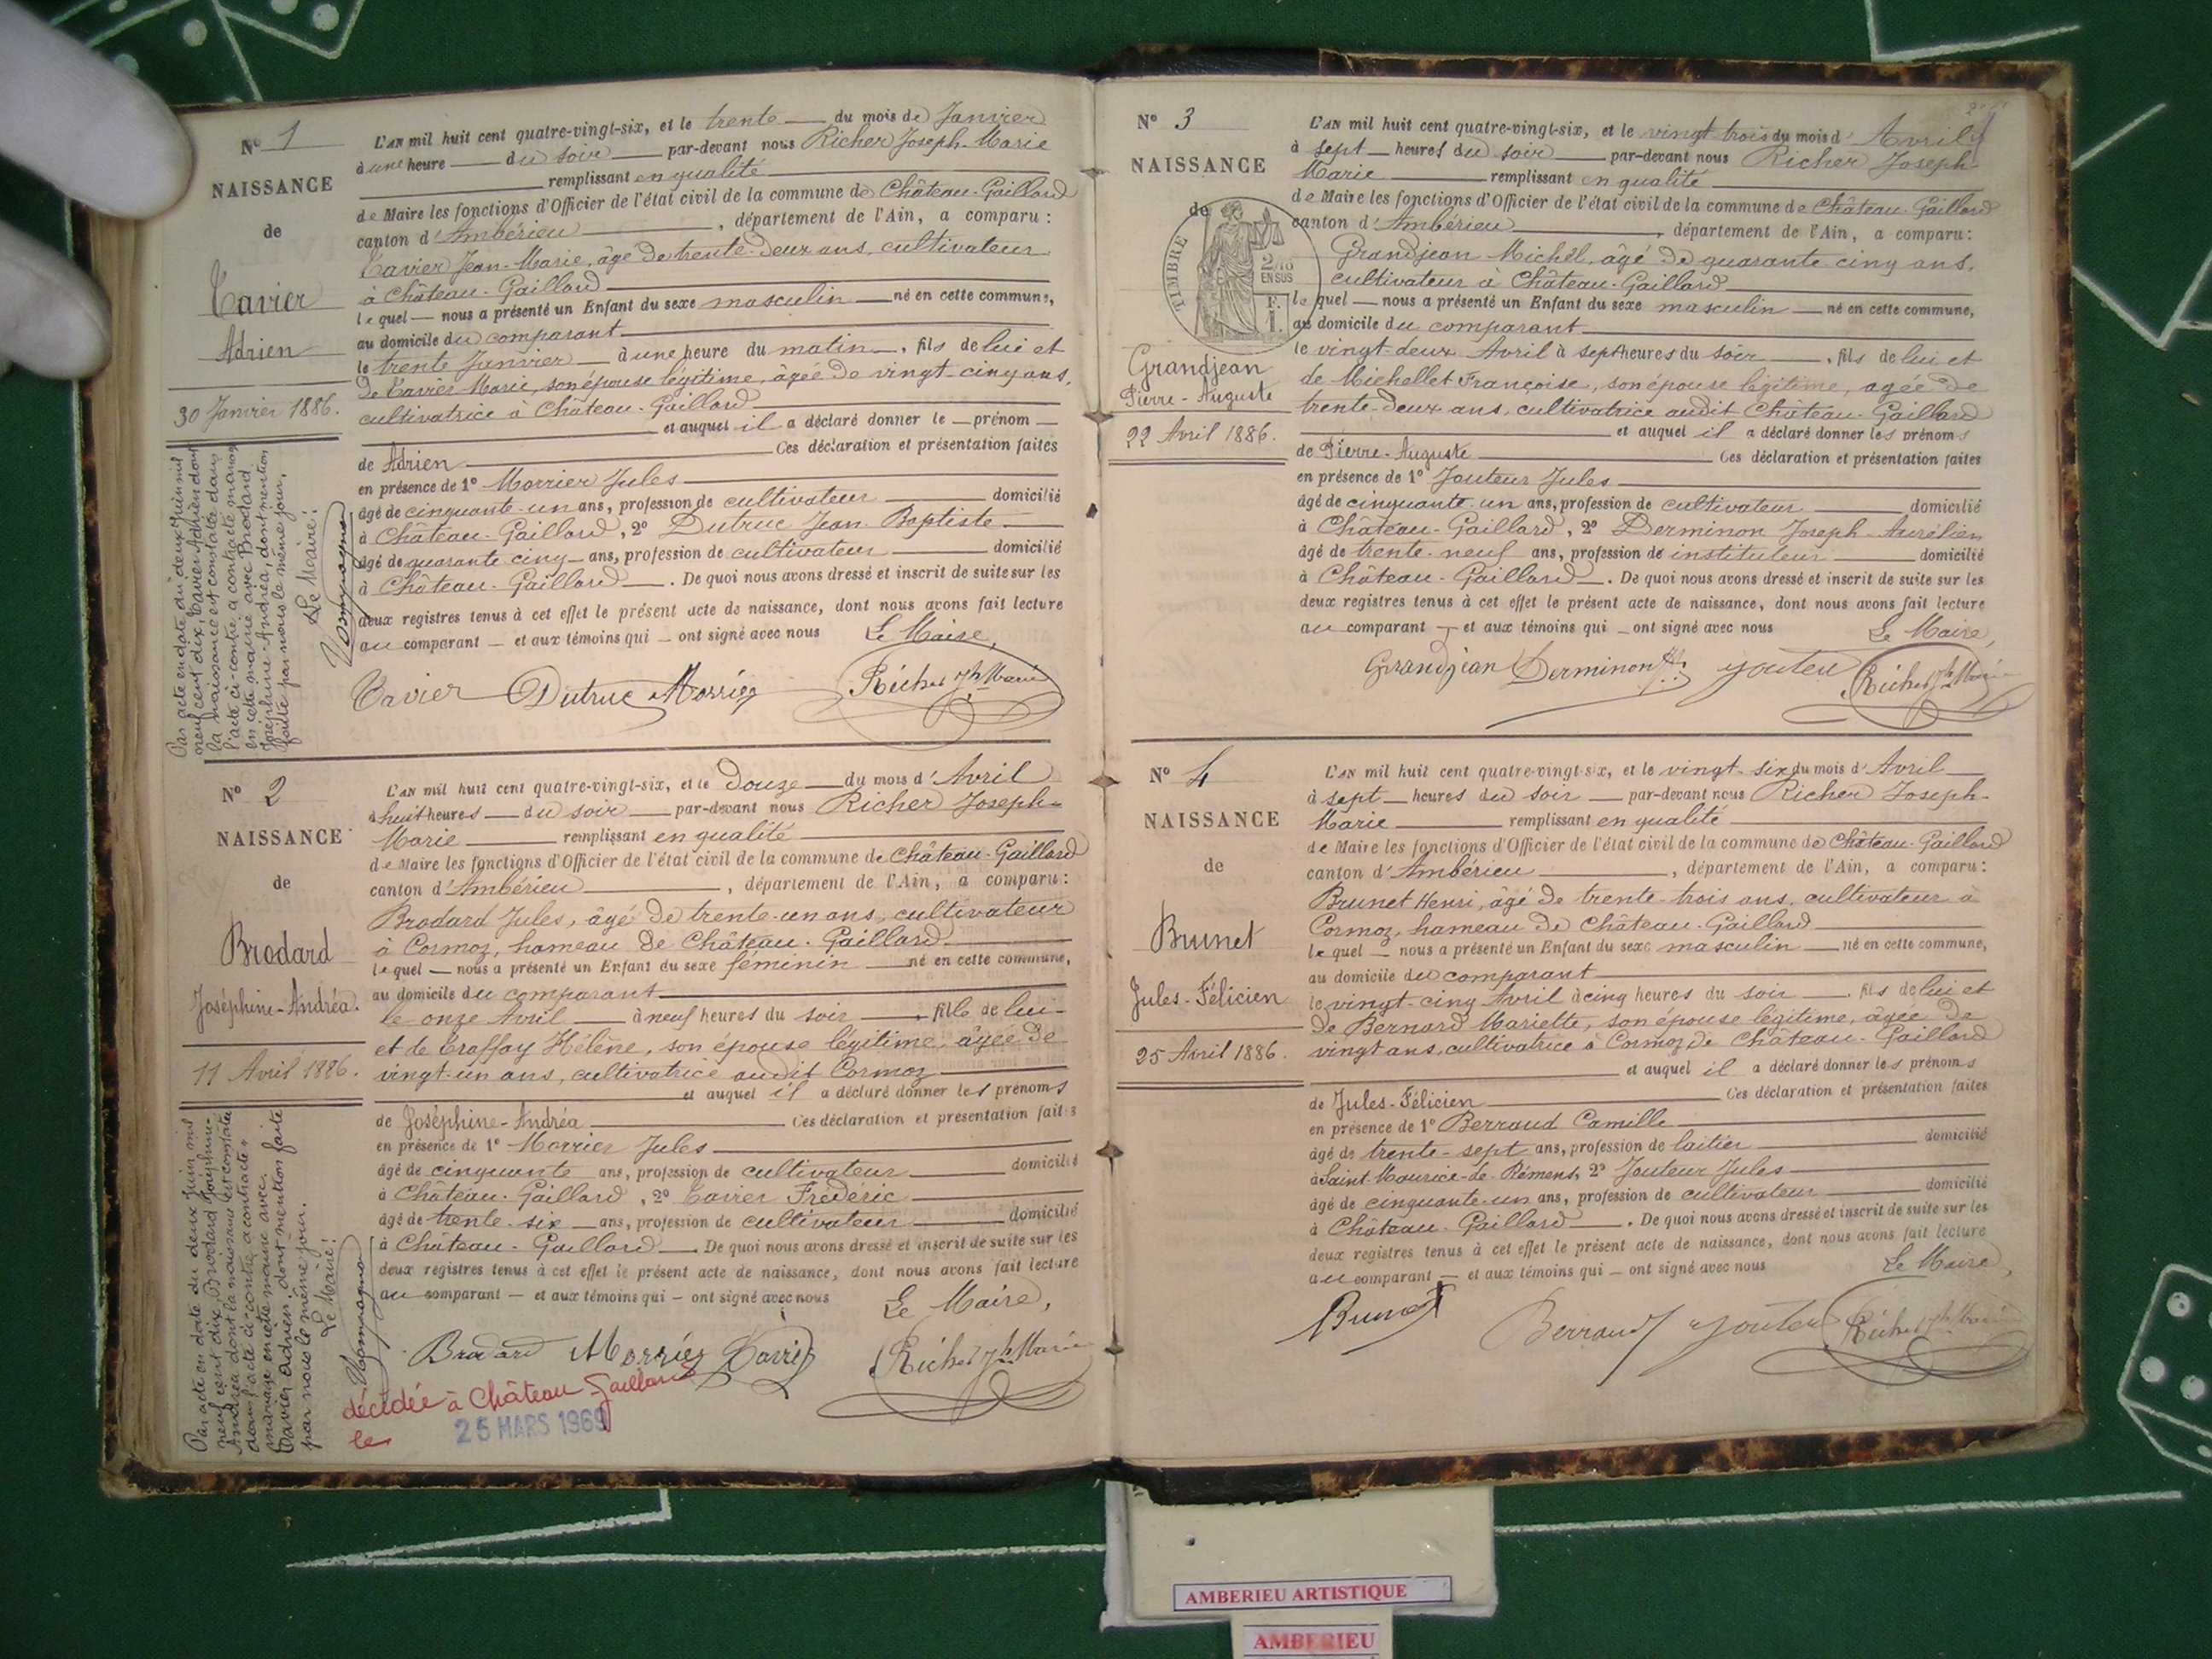 N° 1
NAISSANCE
de
Tavier
Adrien
30 Janvier 1886.
L'AN mil huit cent quatre-vingt-six, et le trente du mois de Janvier
à une heure du soir par-devant nous Richer Joseph-Marie
remplissant en qualité
de Maire les fonctions d'Officier de l'état civil de la commune de Château-Gaillard
canton d'Ambérieu, département de l'Ain, a comparu :
Tavier Jean-Marie, âgé de trente-deux ans, cultivateur
à Château-Gaillard
lequel nous a présenté un Enfant du sexe masculin né en cette commune,
au domicile du comparant
le trente Janvier à une heure du matin, fils de lui et
de Tavier Marie, son épouse légitime, âgée de vingt-cinq ans,
cultivatrice à Château-Gaillard
et auquel il a déclaré donner le prénom
de Adrien Ces déclaration et présentation faites
en présence de 1° Morrier Jules
âgé de cinquante-un ans, profession de cultivateur domicilié
à Château-Gaillard, 2° Dutruc Jean-Baptiste
âgé de quarante cinq ans, profession de cultivateur domicilié
à Château-Gaillard. De quoi nous avons dressé et inscrit de suite sur les
deux registres tenus à cet effet le présent acte de naissance, dont nous avons fait lecture
au comparant et aux témoins qui ont signé avec nous Le Maire,
Tavier Dutruc Morrier Richer Jh Marie
Par acte en date du deux Juin mil
neuf cent dix, Tavier Adrien dont
la naissance est constatée dans
l'acte ci-contre a contracté mariage
en cette mairie avec Brodard
Joséphine-Andréa, dont mention
faite par nous le même jour.
Le Maire:
N° 2
NAISSANCE
de
Brodard
Joséphine-Andréa.
11 Avril 1886.
L'AN mil huit cent quatre-vingt-six, et le Douze du mois d'Avril
à huit heures du soir par-devant nous Richer Joseph-
Marie remplissant en qualité
de Maire les fonctions d'Officier de l'état civil de la commune de Château-Gaillard
canton d'Ambérieu, département de l'Ain, a comparu :
Brodard Jules, âgé de trente-un ans, cultivateur
à Cormoz, hameau de Château-Gaillard
lequel nous a présenté un Enfant du sexe féminin né en cette commune,
au domicile du comparant
le onze Avril à neuf heures du soir, fille de lui
et de Hélène, son épouse légitime, âgée de
vingt-un ans, cultivatrice audit Cormoz
et auquel il a déclaré donner les prénoms
de Joséphine-Andréa Ces déclaration et présentation faites
en présence de 1° Morrier Jules
âgé de cinquante ans, profession de cultivateur domicilié
à Château-Gaillard, 2° Tavier Frédéric
âgé de trente-six ans, profession de cultivateur domicilié
à Château-Gaillard. De quoi nous avons dressé et inscrit de suite sur les
deux registres tenus à cet effet le présent acte de naissance, dont nous avons fait lecture
au comparant et aux témoins qui ont signé avec nous Le Maire,
Brodard Morrier Tavier Richer Jh Marie
Par acte en date du deux Juin mil
neuf cent dix, Brodard Joséphine-
Andréa dont la naissance est constatée
dans l'acte ci-contre a contracté
mariage en cette mairie avec
Tavier Adrien, dont mention faite
par nous le même jour.
Le Maire:
décédée à Château-Gaillard
le 25 MARS 1969
N° 3
NAISSANCE
de
TIMBRE
EN SUS
Grandjean
Pierre-Auguste
22 Avril 1886.
L'AN mil huit cent quatre-vingt-six, et le vingt trois du mois d'Avril
à sept heures du soir par-devant nous Richer Joseph-
Marie remplissant en qualité
de Maire les fonctions d'Officier de l'état civil de la commune de Château-Gaillard
canton d'Ambérieu, département de l'Ain, a comparu :
Grandjean Michel, âgé de quarante-cinq ans,
cultivateur à Château-Gaillard
lequel nous a présenté un Enfant du sexe masculin né en cette commune,
au domicile du comparant
le vingt-deux Avril à sept heures du soir, fils de lui et
de Michellet Françoise, son épouse légitime, agée de
trente-deux ans, cultivatrice audit Château-Gaillard
et auquel il a déclaré donner les prénoms
de Pierre-Auguste Ces déclaration et présentation faites
en présence de 1° Jouteur Jules
âgé de cinquante-un ans, profession de cultivateur domicilié
à Château-Gaillard, 2° Derminon Joseph-Aurélien
âgé de trente-neuf ans, profession de instituteur domicilié
à Château-Gaillard. De quoi nous avons dressé et inscrit de suite sur les
deux registres tenus à cet effet le présent acte de naissance, dont nous avons fait lecture
au comparant et aux témoins qui ont signé avec nous Le Maire,
Grandjean Derminon Jouteur Richer Jh Marie
N° 4
NAISSANCE
de
Brunet
Jules-Félicien
25 Avril 1886.
L'AN mil huit cent quatre-vingt-six, et le vingt-six du mois d'Avril
à sept heures du soir par-devant nous Richer Joseph-
Marie remplissant en qualité
de Maire les fonctions d'Officier de l'état civil de la commune de Château-Gaillard
canton d'Ambérieu, département de l'Ain, a comparu :
Brunet Henri, âgé de trente-trois ans, cultivateur à
Cormoz, hameau de Château-Gaillard
lequel nous a présenté un Enfant du sexe masculin né en cette commune,
au domicile du comparant
le vingt-cinq Avril à cinq heures du soir, fils de lui et
de Bernard Mariette, son épouse légitime, âgée de
vingt ans, cultivatrice à Cormoz de Château-Gaillard
et auquel il a déclaré donner les prénoms
de Jules-Félicien Ces déclaration et présentation faites
en présence de 1° Berraud Camille
âgé de trente-sept ans, profession de laitier domicilié
à Saint-Maurice-de-Rémens, 2° Jouteur Jules
âgé de cinquante-un ans, profession de cultivateur domicilié
à Château-Gaillard. De quoi nous avons dressé et inscrit de suite sur les
deux registres tenus à cet effet le présent acte de naissance, dont nous avons fait lecture
au comparant et aux témoins qui ont signé avec nous Le Maire,
Brunet Berraud Jouteur Richer Jh Marie
AMBERIEU ARTISTIQUE
AMBERIEU